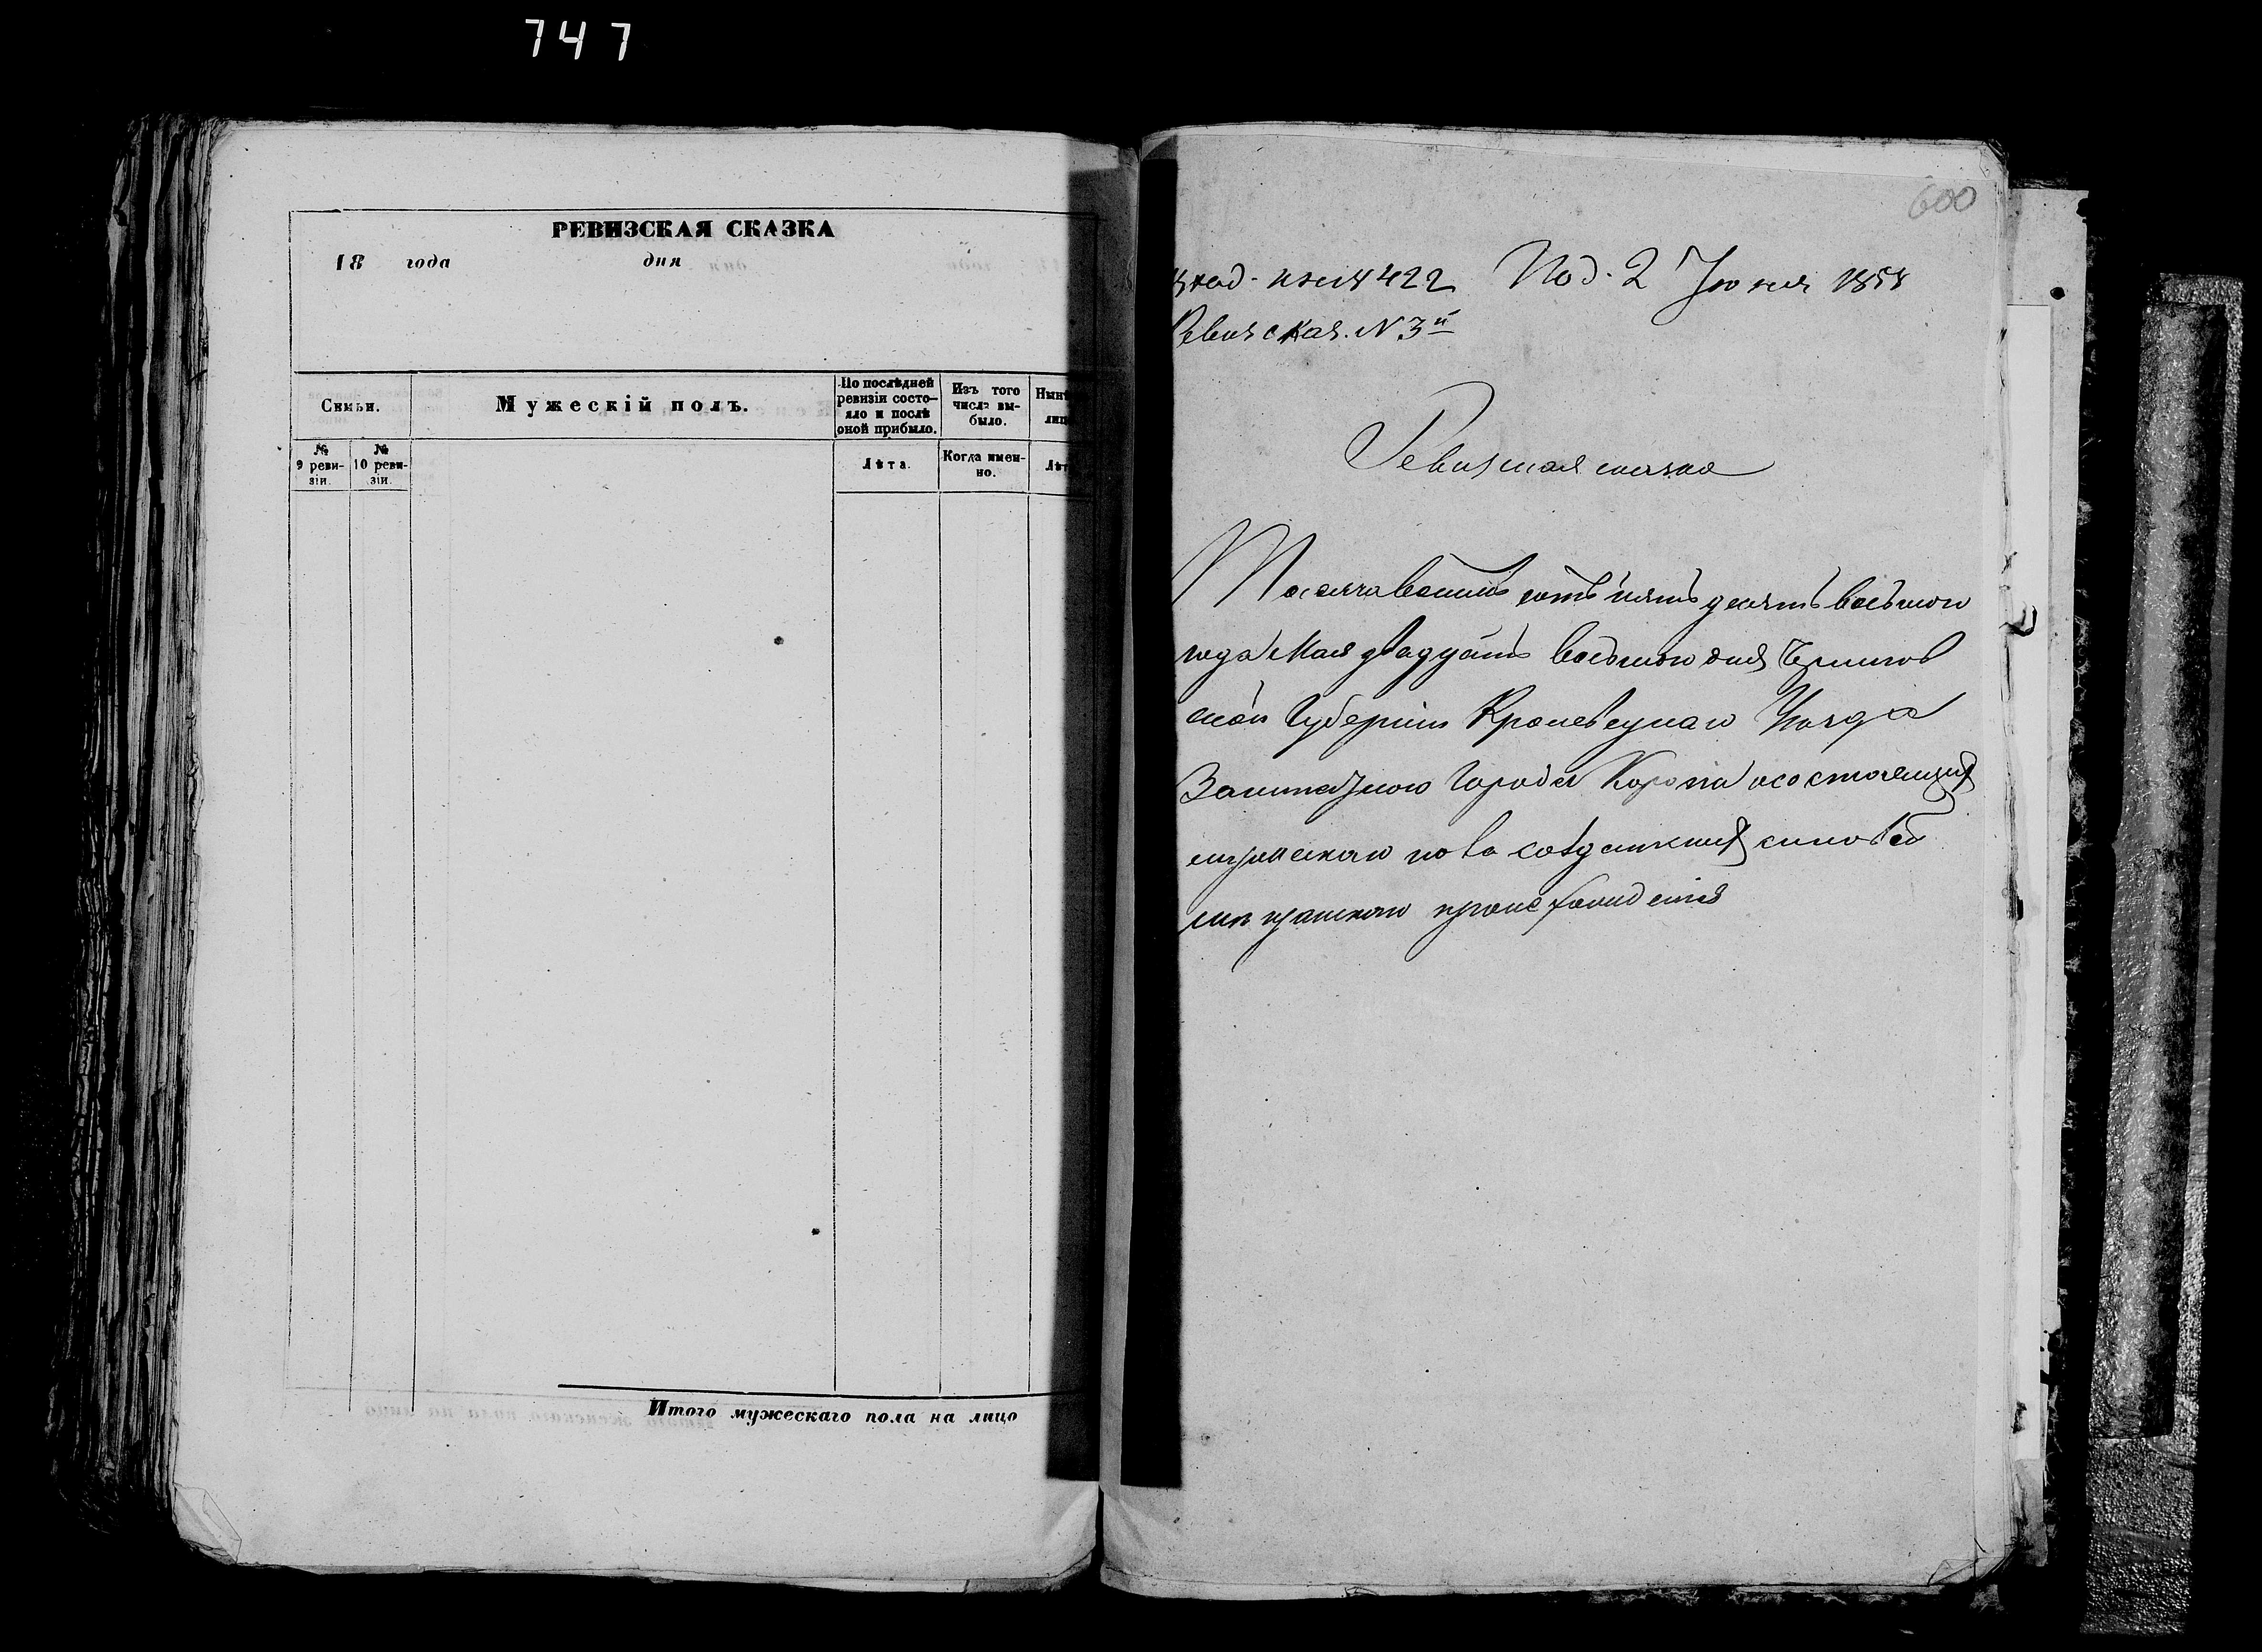 747
РЕВИЗСКАЯ СКАЗКА
18 года дня
Семьи.
Мужескій полъ.
По послѣдней ревизіи состояло и послѣ оной прибыло.
Изъ того числа выбыло.
№ 9 ревизіи.
№ 10 ревизіи.
Лѣта.
Когда именно.
Итого мужескаго пола на лицо
600
422 Под. 2 Июня 1858
Ревизская. N 3й
Ревизская сказка
Тысяча восемь сотъ пять десятъ восьмого
года Мая двадцать восьмого дня Чернигов
ской Губерніи Кролевецкаго Уезда
Заштатного Города Коропа о состоящих
сыновей
происхождения